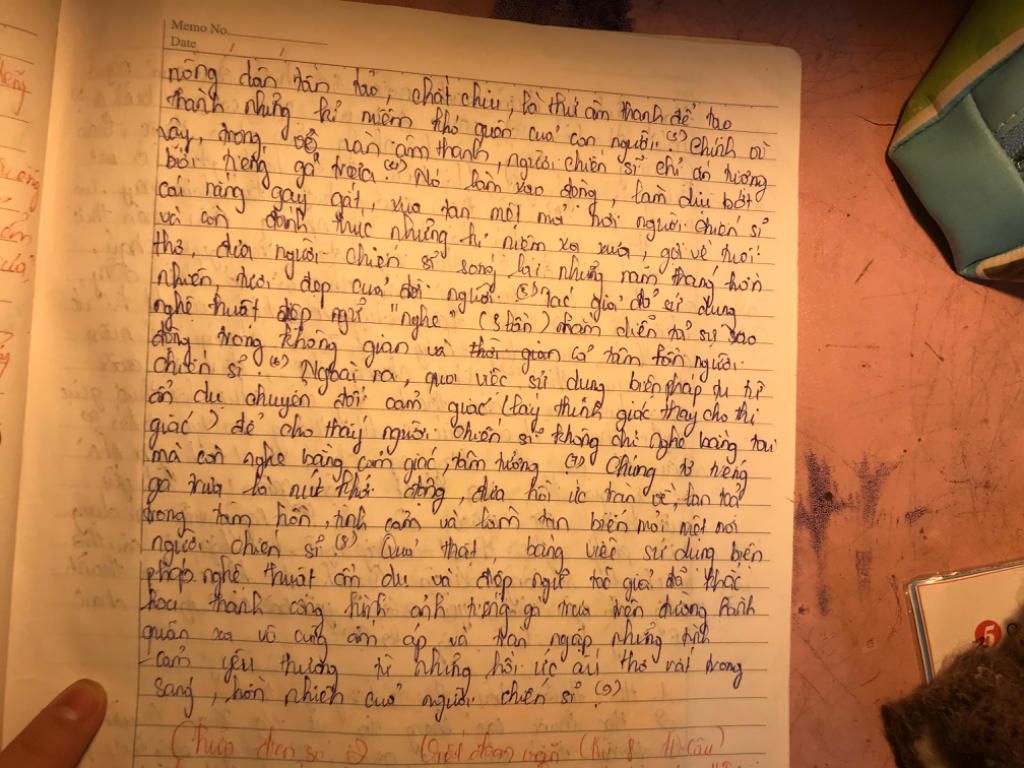 Memo No.
Date / /
nông dân tần tảo, chắt chiu, là thứ âm thanh để tạo
thành những kỉ niệm khó quên của con người. (3) Chính vì
vậy, trong vô vàn âm thanh, người chiến sĩ chỉ ấn tượng
bởi tiếng gà trưa. (4) Nó làm xao động, làm dịu bớt
cái nắng gay gắt, xua tan mệt mỏi nơi người chiến sĩ
và còn đánh thức những kỉ niệm xa xưa, gọi về tuổi
thơ, đưa người chiến sĩ sống lại những năm tháng hồn
nhiên, tươi đẹp của đời người. (5) Tác giả đã sử dụng
nghệ thuật điệp ngữ "nghe" (3 lần) nhằm diễn tả sự xao
động trong không gian và thời gian cả tâm hồn người
chiến sĩ (6) Ngoài ra, qua việc sử dụng biện pháp tu từ
ẩn dụ chuyển đổi cảm giác (lấy thính giác thay cho thị
giác) để cho thấy người chiến sĩ không chỉ nghe bằng tai
mà còn nghe bằng cảm giác, tâm tưởng (7) Chứng tỏ tiếng
gà trưa là nút khởi động, đưa hồi ức tràn về, lan toả
trong tâm hồn, tình cảm và làm tan biến mỏi mệt nơi
người chiến sĩ (8) Quả thật, bằng việc sử dụng biện
pháp nghệ thuật ẩn dụ và điệp ngữ tác giả đã khắc
hoạ thành công hình ảnh tiếng gà trưa trên đường hành
quân xa vô cùng ấm áp và tràn ngập những tình
cảm yêu thương từ những hồi ức ấu thơ rất trong
sáng, hồn nhiên của người chiến sĩ (9)
đoạn số 2 Viết đoạn văn (từ 8 câu)
5